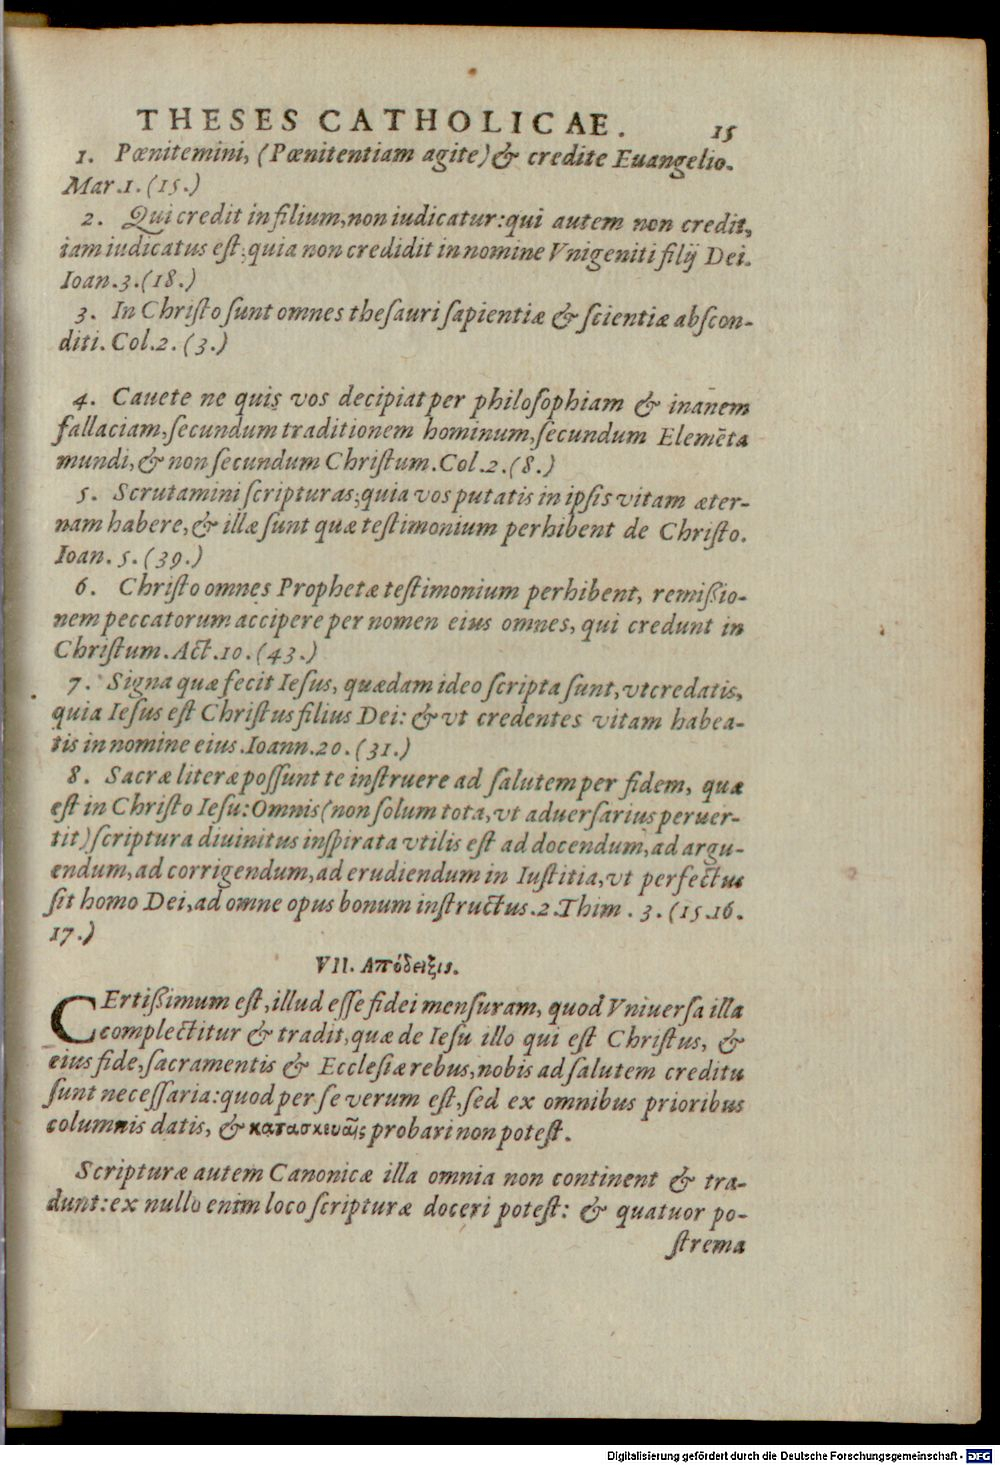 THESES CATHOLICAE. 15
1. Pœnitemini, (Pœnitentiam agite) & credite Euangelio.
Mar.1.(15.)
2. Qui credit in filium, non iudicatur: qui autem non credit,
iam iudicatus eſt: quia non credidit in nomine Vnigeniti filij Dei.
Ioan.3.(18.)
3. In Chriſto ſunt omnes theſauri ſapientiæ & ſcientiæ abſcon-
diti. Col.2. (3.)
4. Cauete ne quis vos decipiat per philoſophiam & inanem
fallaciam, ſecundum traditionem hominum, ſecundum Elemēta
mundi, & non ſecundum Chriſtum. Col.2.(8.)
5. Scrutamini ſcripturas; quia vos putatis in ipſis vitam æter-
nam habere, & illæ ſunt quæ teſtimonium perhibent de Chriſto.
Ioan. 5. (39.)
6. Chriſto omnes Prophetæ teſtimonium perhibent, remißio-
nem peccatorum accipere per nomen eius omnes, qui credunt in
Chriſtum. Act.10.(43.)
7. Signa quæ fecit Ieſus, quædam ideo ſcripta ſunt, vt credatis,
quia Ieſus eſt Chriſtus filius Dei: & vt credentes vitam habea-
tis in nomine eius. Ioann.20. (31.)
8. Sacræ literæ poſſunt te inſtruere ad ſalutem per fidem, quæ
eſt in Chriſto Ieſu: Omnis (non ſolum tota, vt aduerſarius peruer-
tit) ſcriptura diuinitus inſpirata vtilis eſt ad docendum, ad argu-
endum, ad corrigendum, ad erudiendum in Iuſtitia, vt perfectus
ſit homo Dei, ad omne opus bonum inſtructus. 2. Thim. 3. (15.16.
17.)
VII. Απόδειξις.
CErtißimum eſt, illud eſſe fidei menſuram, quod Vniuerſa illa
complectitur & tradit, quæ de Ieſu illo qui eſt Chriſtus, &
eius fide, ſacramentis & Eccleſiæ rebus, nobis ad ſalutem creditu
ſunt neceſſaria: quod per ſe verum eſt, ſed ex omnibus prioribus
columnis datis, & κατασκευαῖς probari non poteſt.
Scripturæ autem Canonicæ illa omnia non continent & tra-
dunt: ex nullo enim loco ſcripturæ doceri poteſt: & quatuor po-
ſtrema
Digitalisierung gefördert durch die Deutsche Forschungsgemeinschaft - DFG